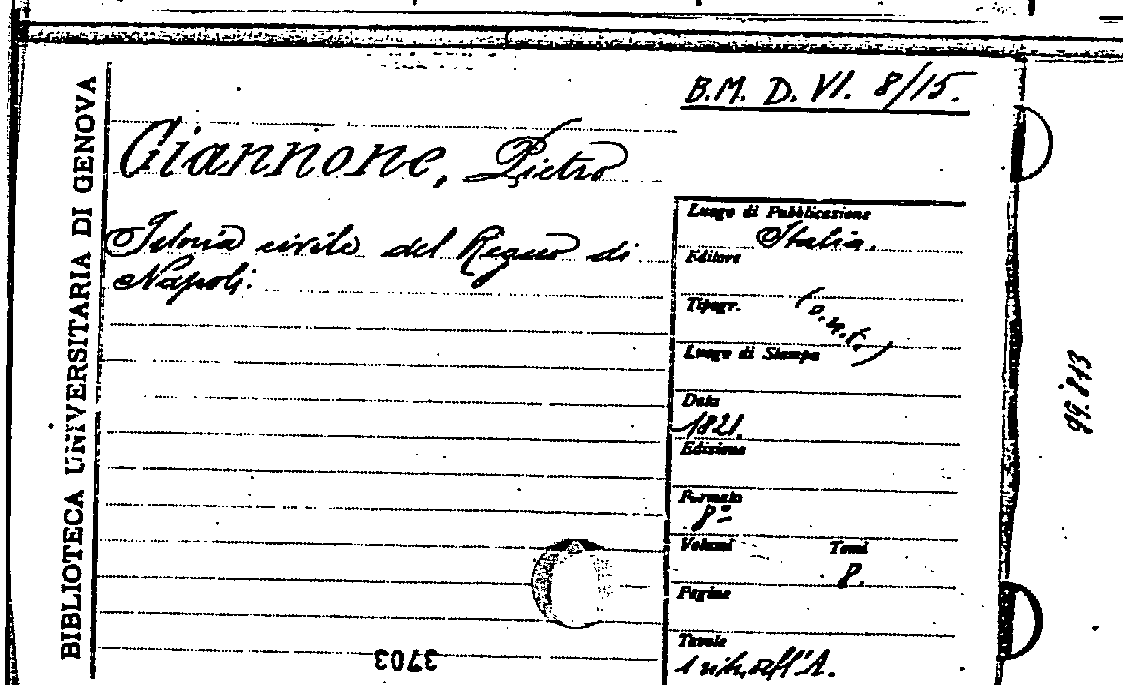 BIBLIOTECA UNIVERSITARIA DI GENOVA
B.M. D. VI. 8/15.
Giannone, Pietro
Istoria civile del Regno di
Napoli.
Luogo di Pubblicazione
Italia.
Editore
Tipogr. (s.n.t.)
Luogo di Stampa
Data
1821.
Edizione
Formato
8º
Volumi Tomi
8.
Pagine
Tavole
1 rit. dell'A.
3703
99.813